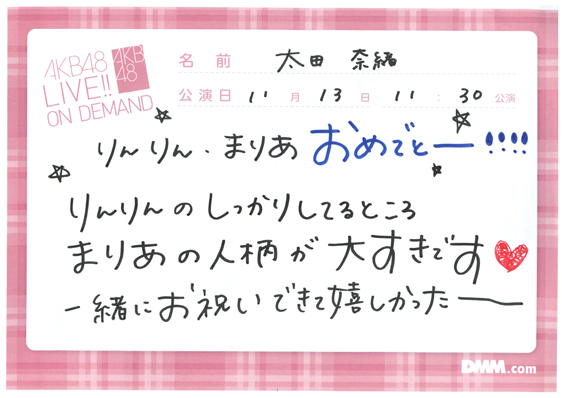 AKB48
LIVE!!
ON DEMAND
AKB
48
名前 太田 奈緒
公演日 11月13日 11:30公演
りんりん、まりあ おめでとー!!!!
りんりんのしっかりしてるところ
まりあの人柄が大すきです♥
一緒にお祝いできて嬉しかったー
DMM.com